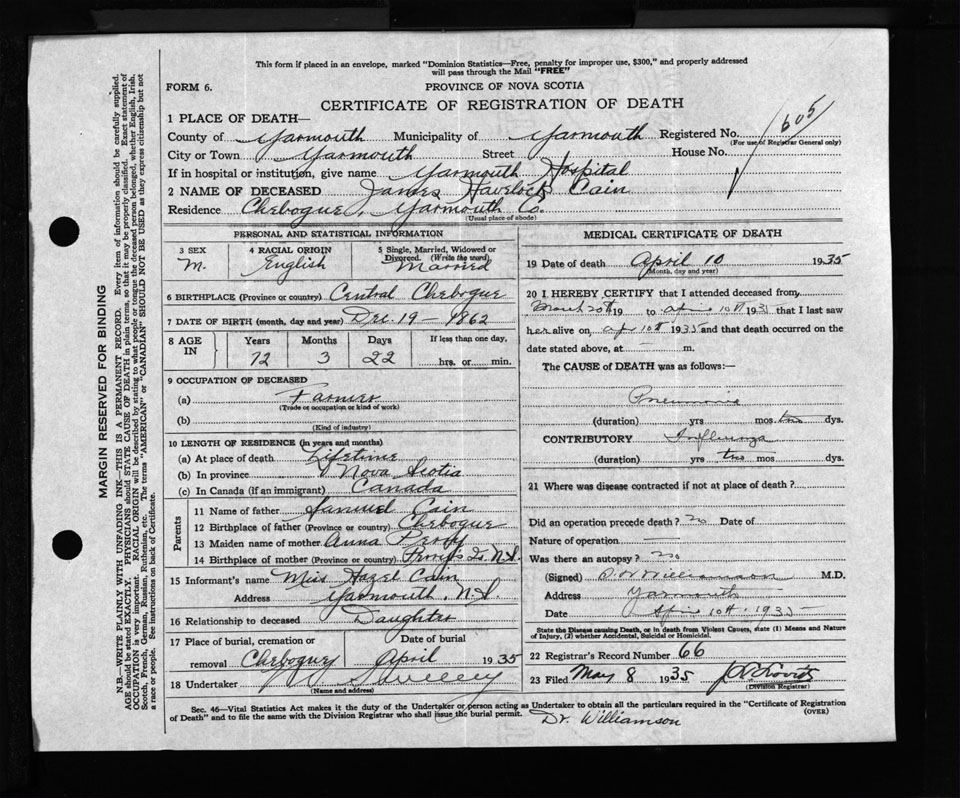 This form if placed in an envelope, marked "Dominion Statistics—Free, penalty for improper use, $300," and properly addressed
will pass through the Mail "FREE"
FORM 6. PROVINCE OF NOVA SCOTIA
CERTIFICATE OF REGISTRATION OF DEATH
1 PLACE OF DEATH—
County of Yarmouth Municipality of Yarmouth Registered No. 605
(For use of Registrar General only)
City or Town Yarmouth Street House No.
If in hospital or institution, give name Yarmouth Hospital
2 NAME OF DECEASED James Havelock Cain
Residence Chebogue, Yarmouth Co.
(Usual place of abode)
PERSONAL AND STATISTICAL INFORMATION
3 SEX 4 RACIAL ORIGIN 5 Single, Married, Widowed or
Divorced. (Write the word)
M. English Married
6 BIRTHPLACE (Province or country) Central Chebogue
7 DATE OF BIRTH (month, day and year) Dec. 19 - 1862
8 AGE IN Years Months Days If less than one day,
72 3 22 hrs. or min.
9 OCCUPATION OF DECEASED
(a) Farmer
(Trade or occupation or kind of work)
(b)
(Kind of industry)
10 LENGTH OF RESIDENCE (in years and months)
(a) At place of death Lifetime
(b) In province Nova Scotia
(c) In Canada (if an immigrant) Canada
Parents
11 Name of father Samuel Cain
12 Birthplace of father (Province or country) Chebogue
13 Maiden name of mother Anna
14 Birthplace of mother (Province or country) N.S.
15 Informant's name Miss Hazel Cain
Address Yarmouth, N.S.
16 Relationship to deceased Daughter
17 Place of burial, cremation or Date of burial
removal Chebogue April 1935
18 Undertaker Sweeney
(Name and address)
MEDICAL CERTIFICATE OF DEATH
19 Date of death April 10 1935
(Month, day and year)
20 I HEREBY CERTIFY that I attended deceased from
March 20th 19 to April 10th 1935 that I last saw
h alive on Apr 10th 1935 and that death occurred on
the date stated above, at - m.
The CAUSE of DEATH was as follows:—
Pneumonia
(duration) yrs mos two dys.
CONTRIBUTORY Influenza
(duration) yrs two mos dys.
21 Where was disease contracted if not at place of death?
Did an operation precede death? no Date of
Nature of operation —
Was there an autopsy? no
(Signed) Williamson M.D.
Address Yarmouth
Date April 10th 1935
State the Disease causing Death, or in death from Violent Causes, state (1) Means and Nature
of Injury, (2) whether Accidental, Suicidal or Homicidal.
22 Registrar's Record Number 66
23 Filed May 8 1935
(Division Registrar)
Sec. 46—Vital Statistics Act makes it the duty of the Undertaker or person acting as Undertaker to obtain all the particulars required in the "Certificate of Registration
of Death" and to file the same with the Division Registrar who shall issue the burial permit. (OVER)
Dr. Williamson
MARGIN RESERVED FOR BINDING
N.B.—WRITE PLAINLY WITH UNFADING INK—THIS IS A PERMANENT RECORD. Every item of information should be carefully supplied.
AGE should be stated EXACTLY. PHYSICIANS should STATE CAUSE OF DEATH in plain terms, so that it may be properly classified. Exact statement of
OCCUPATION is very important. RACIAL ORIGIN will be described by stating to what people or tongue the deceased person belonged, whether English, Irish,
Scotch, French, German, Russian, Ruthenian, etc. The terms "AMERICAN" or "CANADIAN" SHOULD NOT BE USED as they express citizenship but not
a race or people. See instructions on back of Certificate.